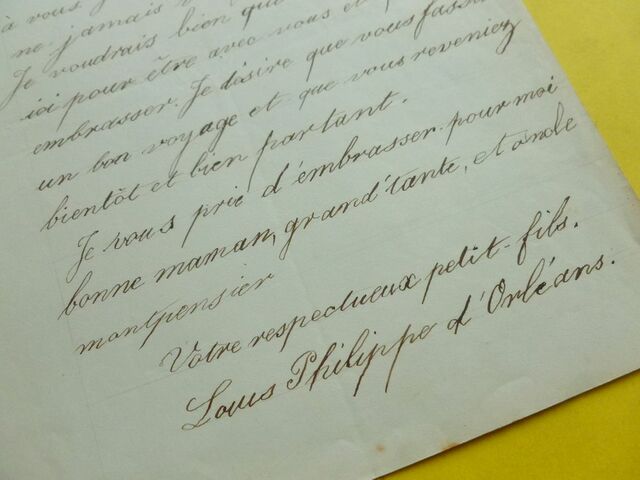 à vous
ne jamais
Je voudrais bien que
ici pour être avec vous et
embrasser. Je désire que vous fassiez
un bon voyage et que vous reveniez
bientôt et bien portant.
Je vous prie d'embrasser pour moi
bonne maman, grand'tante, et oncle
montpensier
Votre respectueux petit-fils.
Louis Philippe d'Orléans.